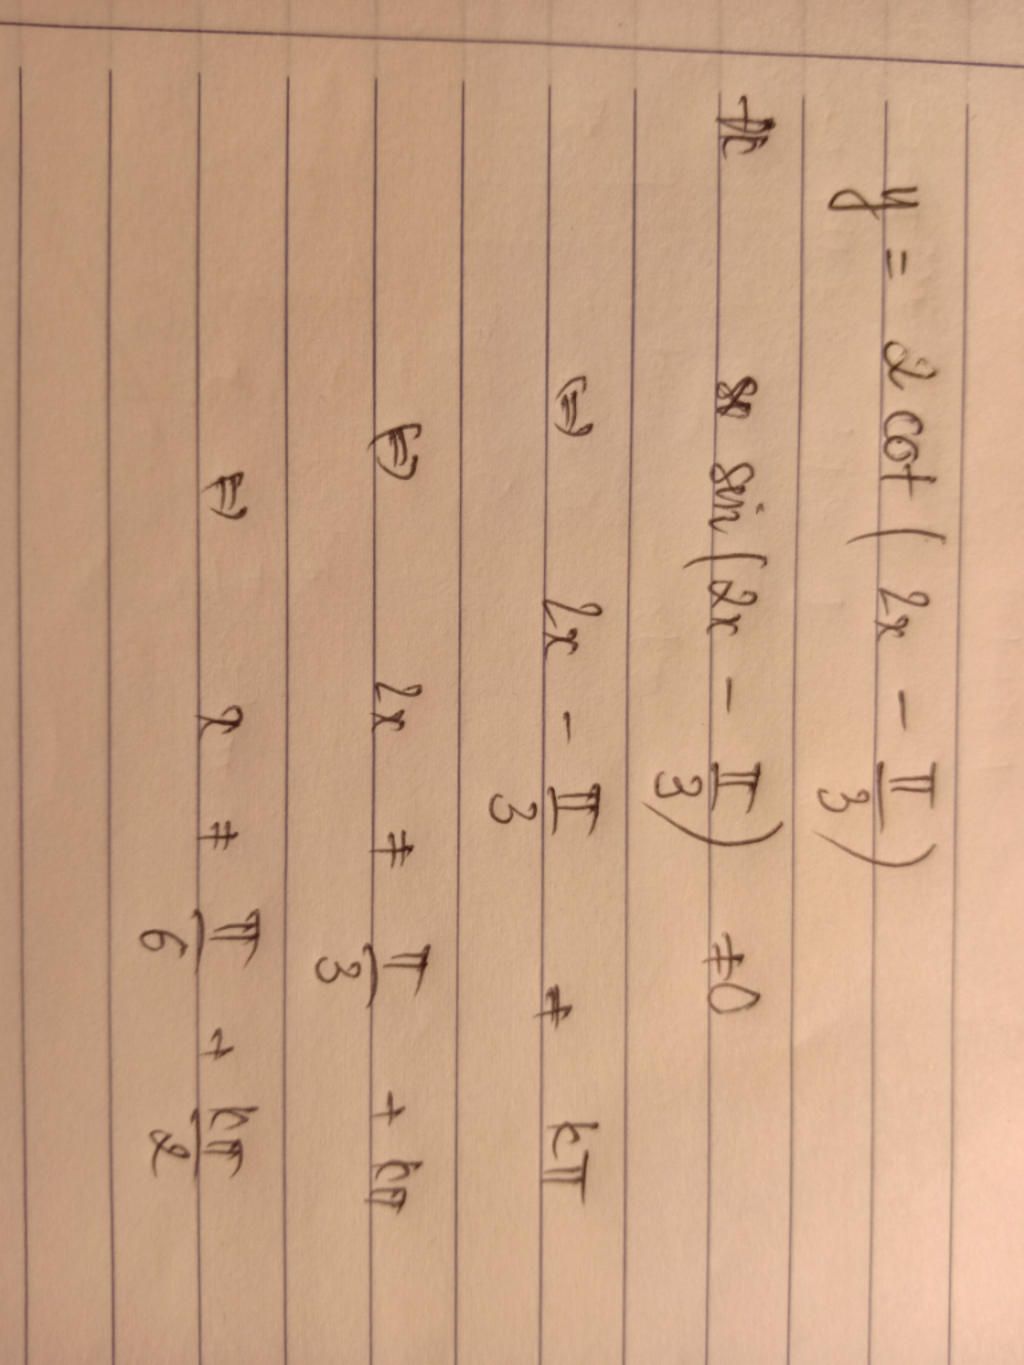 y = 2 cot ( 2x - π/3 )
sin ( 2x - π/3 ) ≠ 0
(=) 2x - π/3 ≠ kπ
(=) 2x ≠ π/3 + kπ
(=) x ≠ π/6 + kπ/2